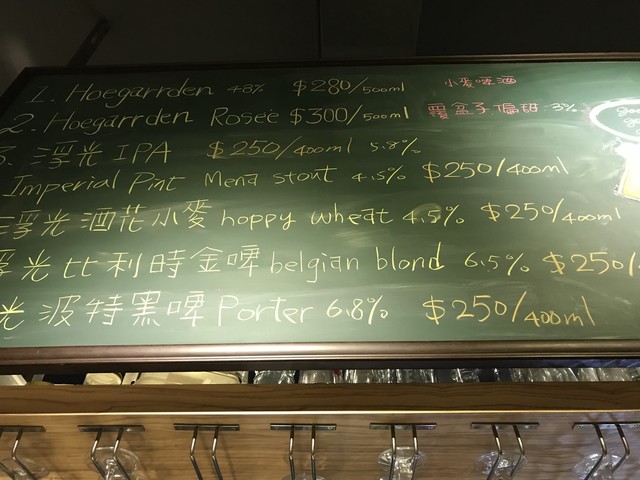 1. Hoegarrden 4.8% $280/500ml 小麥啤酒
2. Hoegarrden Roseé $300/500ml 覆盆子偏甜 3%
3. 浮光 IPA $250/400ml 5.8%
Imperial Pint Mena stout 4.5% $250/400ml
浮光酒花小麥 hoppy wheat 4.5% $250/400ml
浮光比利時金啤 belgian blond 6.5% $250/
光波特黑啤 Porter 6.8% $250/400ml